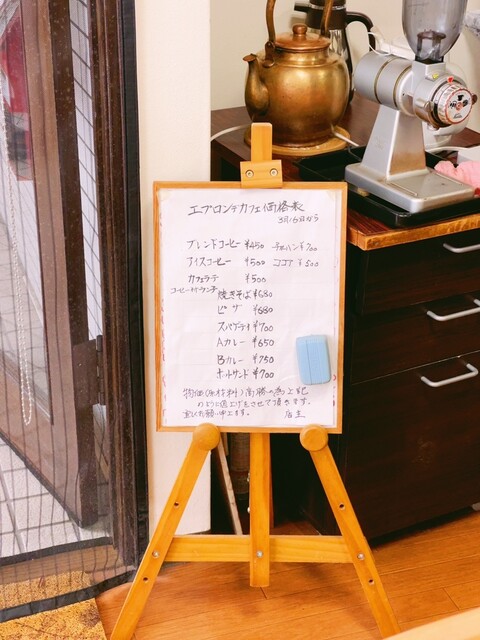 エプロンデカフェ価格表
3月16日から
ブレンドコーヒー ¥450 チャーハン ¥700
アイスコーヒー ¥500 ココア ¥500
カフェラテ ¥500
コーヒー付ランチ
焼きそば ¥680
ピザ ¥680
スパゲティ ¥700
Aカレー ¥650
Bカレー ¥750
ホットサンド ¥700
物価(原材料)高騰の為上記
のように値上げをさせて頂きます。
宜しくお願い申します。 店主